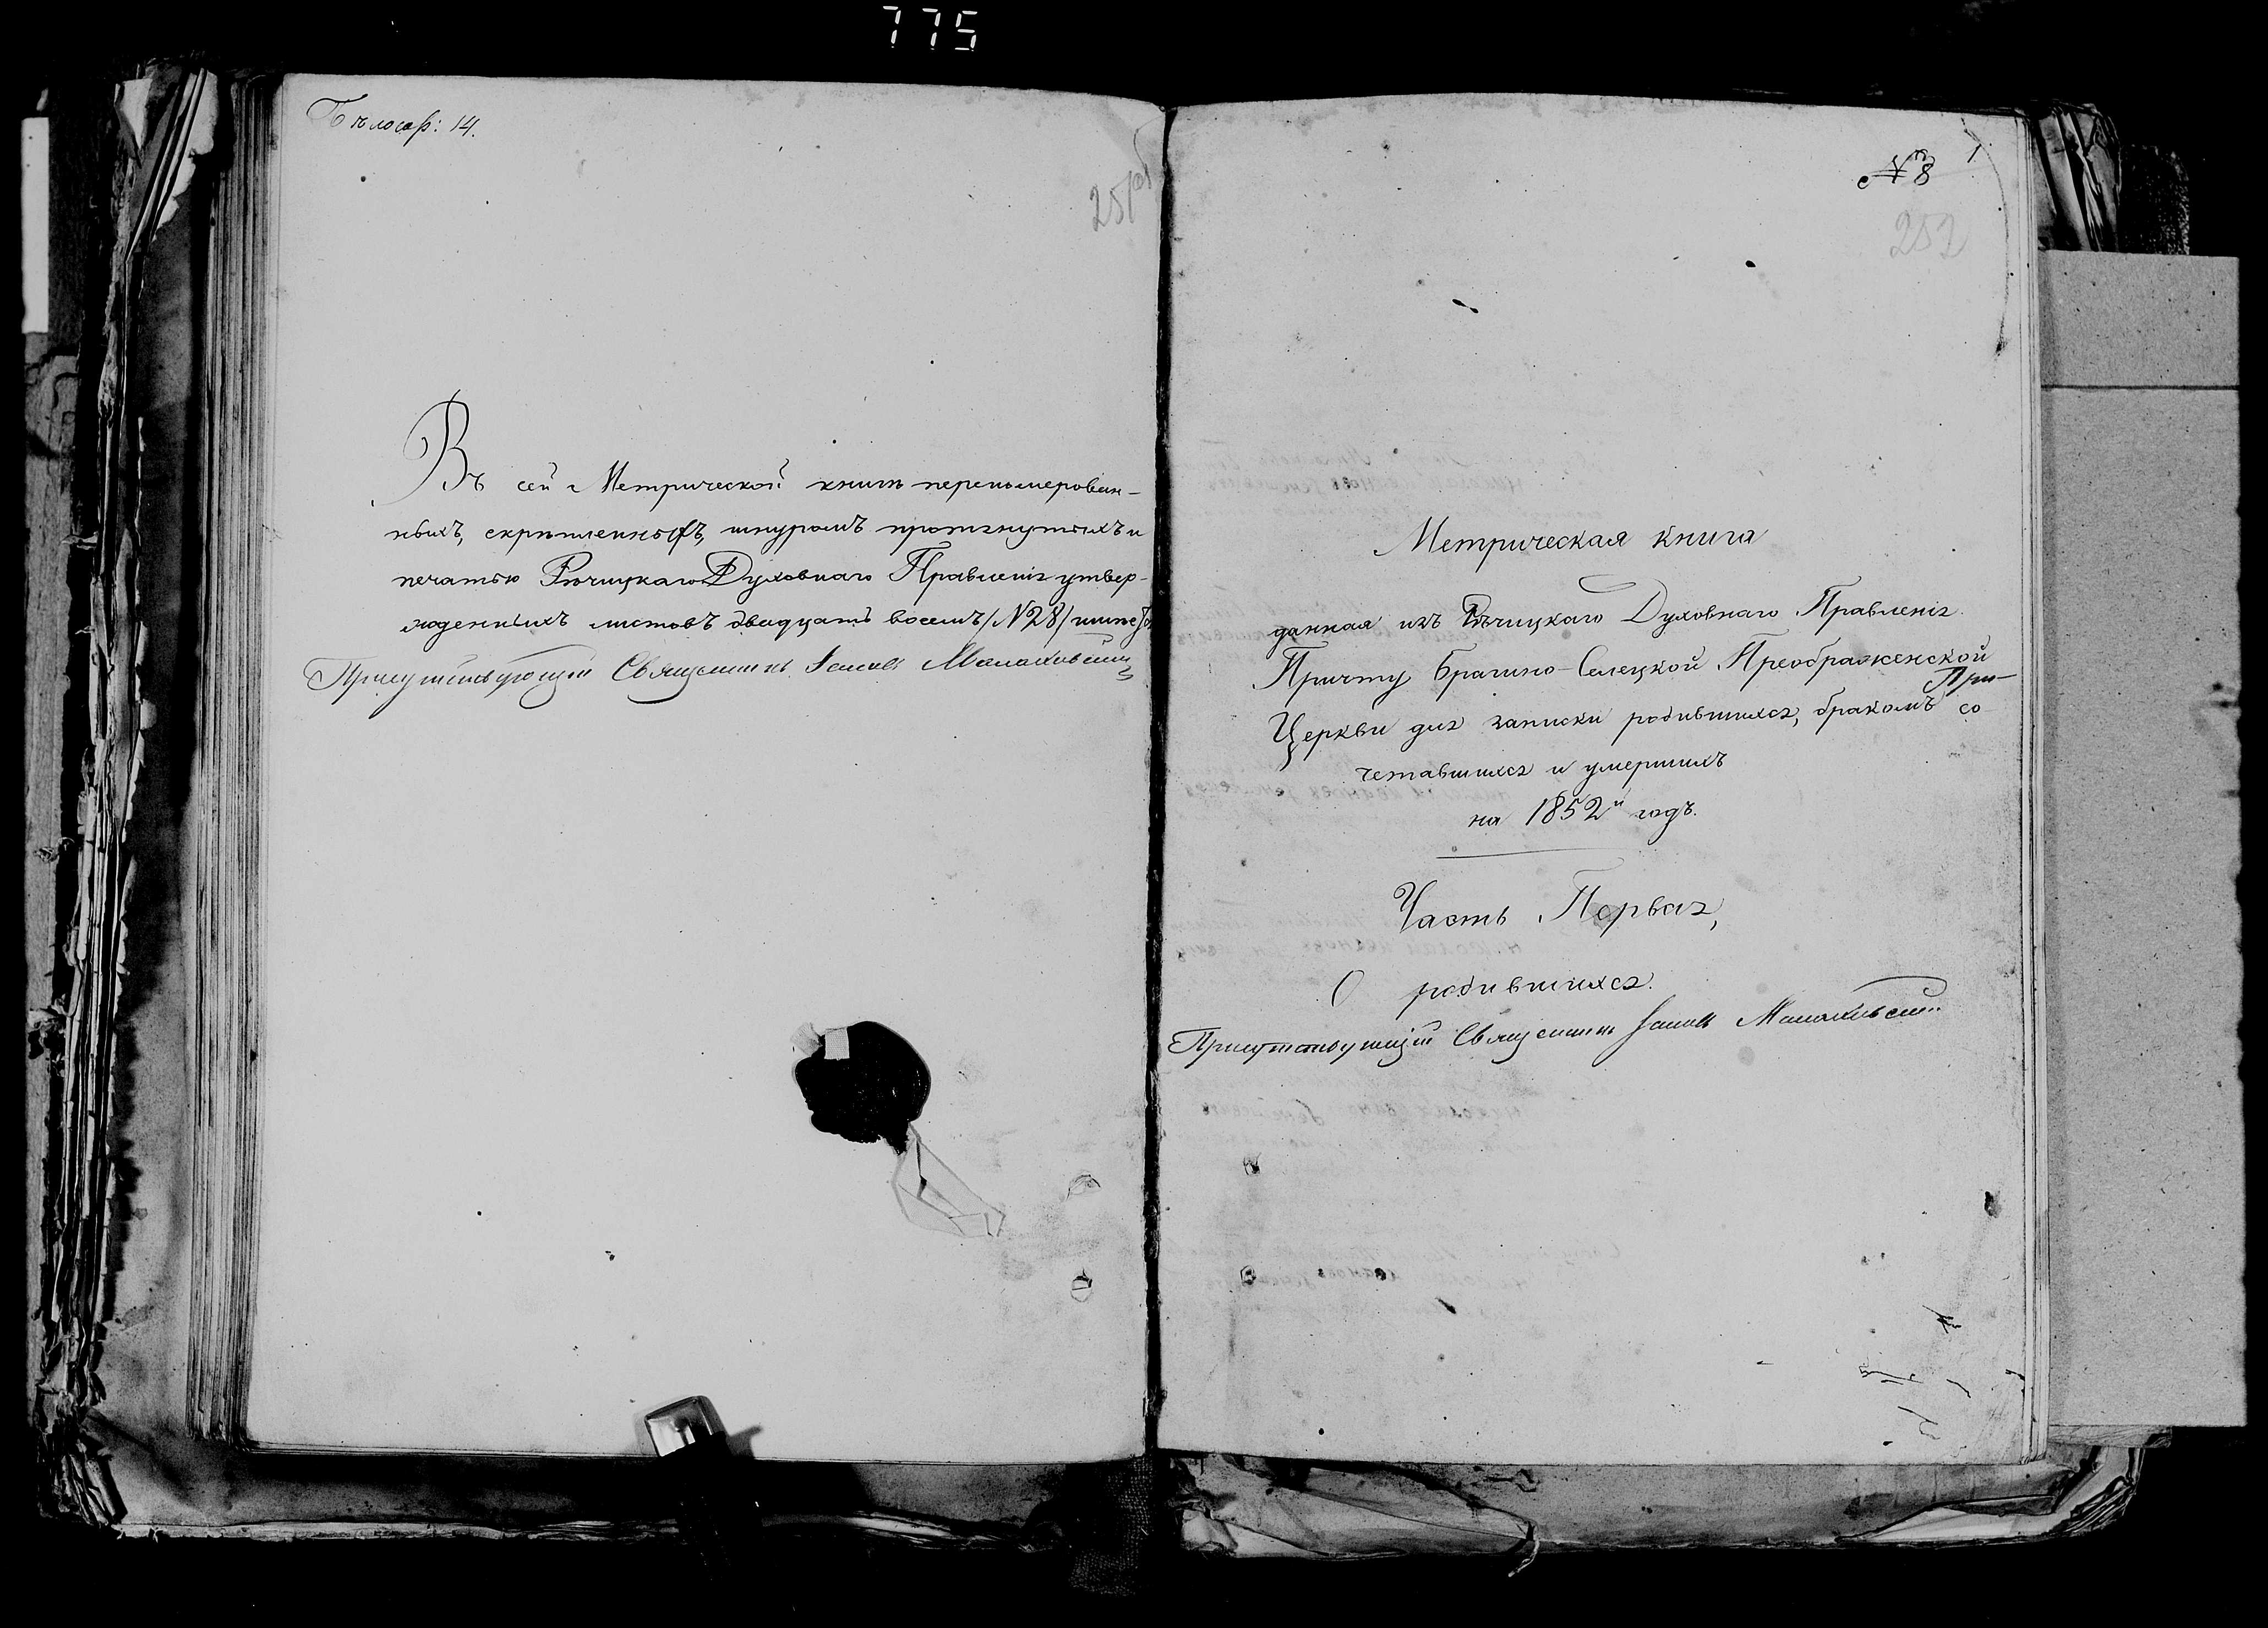 775
251об
Въ сей Метрической книгѣ перенумерован-
ныхъ, скрѣпленныхъ, шнуромъ протянутыхъ и
печатью Рѣчицкаго Духовнаго Правленія утвер-
жденныхъ листовъ двадцать восемь /№28/
Присутствующій Священникъ
№8
1
252
Метрическая книга
данная изъ Рѣчицкаго Духовнаго Правленія
Причту Брагино-Селецкой Преображенской
При-
Церкви для записки родившихся, бракомъ со
четавшихся и умершихъ
на 1852й годъ.
Часть Первая,
О родившихся.
Присутствующій Священникъ